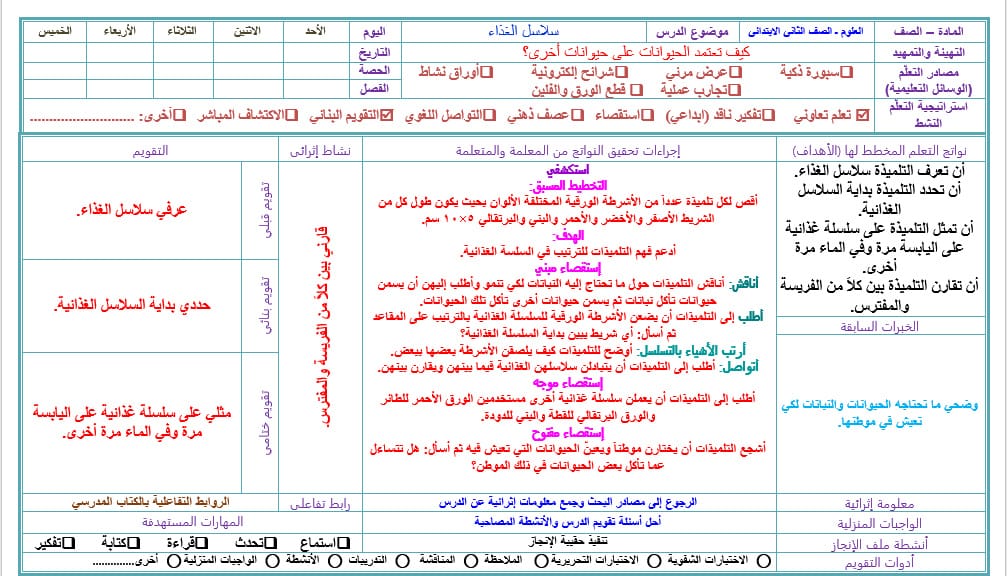 المادة – الصف
العلوم ـ الصف الثاني الابتدائي
موضوع الدرس
سلاسل الغذاء
اليوم
الأحد
الاثنين
الثلاثاء
الأربعاء
الخميس
التهيئة والتمهيد
كيف تعتمد الحيوانات على حيوانات أخرى؟
التاريخ
مصادر التعلّم
(الوسائل التعليمية)
سبورة ذكية
عرض مرئي
شرائح إلكترونية
أوراق نشاط
تجارب عملية
قطع الورق والفلين
الحصة
الفصل
استراتيجية التعلّم
النشط
تعلم تعاوني
تفكير ناقد (ابداعي)
استقصاء
عصف ذهني
التواصل اللغوي
التقويم البنائي
الاكتشاف المباشر
أخرى: ...........................
نواتج التعلم المخطط لها (الأهداف)
إجراءات تحقيق النواتج من المعلمة والمتعلمة
نشاط إثرائي
التقويم
أن تعرف التلميذة سلاسل الغذاء.
أن تحدد التلميذة بداية السلاسل
الغذائية.
أن تمثل التلميذة على سلسلة غذائية
على اليابسة مرة وفي الماء مرة
أخرى.
أن تقارن التلميذة بين كلاً من الفريسة
والمفترس.
الخبرات السابقة
وضحي ما تحتاجه الحيوانات والنباتات لكي
تعيش في موطنها.
استكشفي
التخطيط المسبق:
أقص لكل تلميذة عدداً من الأشرطة الورقية المختلفة الألوان بحيث يكون طول كل من
الشريط الأصفر والأخضر والأحمر والبني والبرتقالي ٥×١٠ سم.
الهدف:
أدعم فهم التلميذات للترتيب في السلسة الغذائية.
إستقصاء مبني
أناقش: أناقش التلميذات حول ما تحتاج إليه النباتات لكي تنمو وأطلب إليهن أن يسمن
حيوانات تأكل نباتات ثم يسمن حيوانات أخرى تأكل تلك الحيوانات.
أطلب إلى التلميذات أن يضعن الأشرطة الورقية للسلسلة الغذائية بالترتيب على المقاعد
ثم أسأل: أي شريط يبين بداية السلسلة الغذائية؟
أرتب الأشياء بالتسلسل: أوضح للتلميذات كيف يلصقن الأشرطة بعضها ببعض.
أتواصل: أطلب إلى التلميذات أن يتبادلن سلاسلهن الغذائية فيما بينهن ويقارن بينهن.
إستقصاء موجه
أطلب إلى التلميذات أن يعملن سلسلة غذائية أخرى مستخدمين الورق الأحمر للطائر
والورق البرتقالي للقطة والبني للدودة.
إستقصاء مفتوح
أشجع التلميذات أن يختارن موطناً ويعينّ الحيوانات التي تعيش فيه ثم أسأل: هل تتساءل
عما تأكل بعض الحيوانات في ذلك الموطن؟
قارني بين كلاً من الفريسة والمفترس.
تقويم قبلي
عرفي سلاسل الغذاء.
تقويم بنائي
حددي بداية السلاسل الغذائية.
تقويم ختامي
مثلي على سلسلة غذائية على اليابسة
مرة وفي الماء مرة أخرى.
معلومة إثرائية
الرجوع إلى مصادر البحث وجمع معلومات إثرائية عن الدرس
رابط تفاعلي
الروابط التفاعلية بالكتاب المدرسي
الواجبات المنزلية
أحل أسئلة تقويم الدرس والأنشطة المصاحبة
المهارات المستهدفة
أنشطة ملف الإنجاز
تنفيذ حقيبة الإنجاز
استماع
تحدث
قراءة
كتابة
تفكير
أدوات التقويم
الاختبارات الشفوية
الاختبارات التحريرية
الملاحظة
المناقشة
التدريبات
الأنشطة
الواجبات المنزلية
أخرى..............